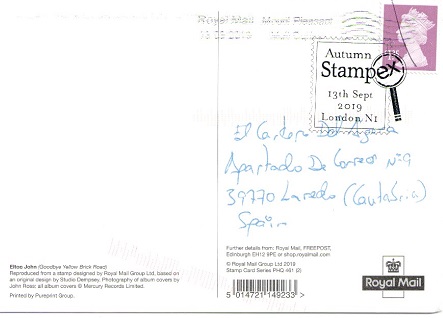 Royal Mail Mount Pleasant
Autumn
Stampex
13th Sept
2019
London N1
El Cartero Del Agua
Apartado De Correos nº9
39770 Laredo (Cantabria)
Spain
Elton John (Goodbye Yellow Brick Road)
Reproduced from a stamp designed by Royal Mail Group Ltd, based on
an original design by Studio Dempsey. Photography of album covers by
John Ross; all album covers © Mercury Records Limited.
Printed by Pureprint Group.
Further details from: Royal Mail, FREEPOST,
Edinburgh EH12 9PE or shop.royalmail.com
© Royal Mail Group Ltd 2019
Stamp Card Series PHQ 461 (2)
5 014721 149233 >
Royal Mail